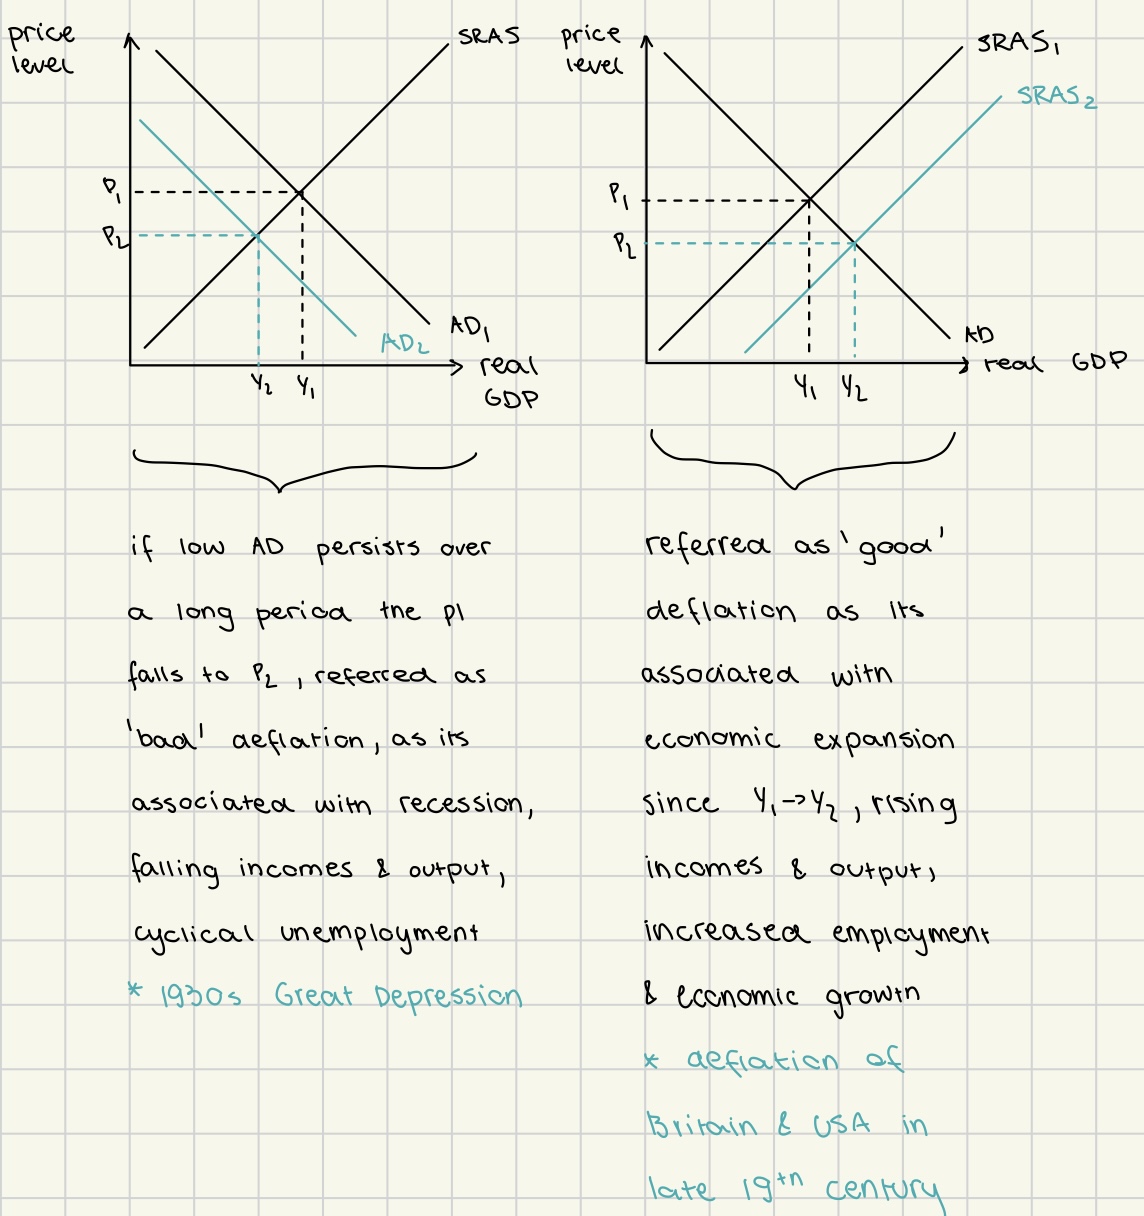 price
level
SRAS
P₁
P₂
AD₁
AD₂
real
GDP
Y₂ Y₁
price
level
SRAS₁
SRAS₂
P₁
P₂
AD
real GDP
Y₁ Y₂
if low AD persists over
a long period the pl
falls to P₂, referred as
'bad' deflation, as its
associated with recession,
falling incomes & output,
cyclical unemployment
* 1930s Great Depression
referred as 'good'
deflation as its
associated with
economic expansion
since Y₁→Y₂, rising
incomes & output,
increased employment
& economic growth
* deflation of
Britain & USA in
late 19th century